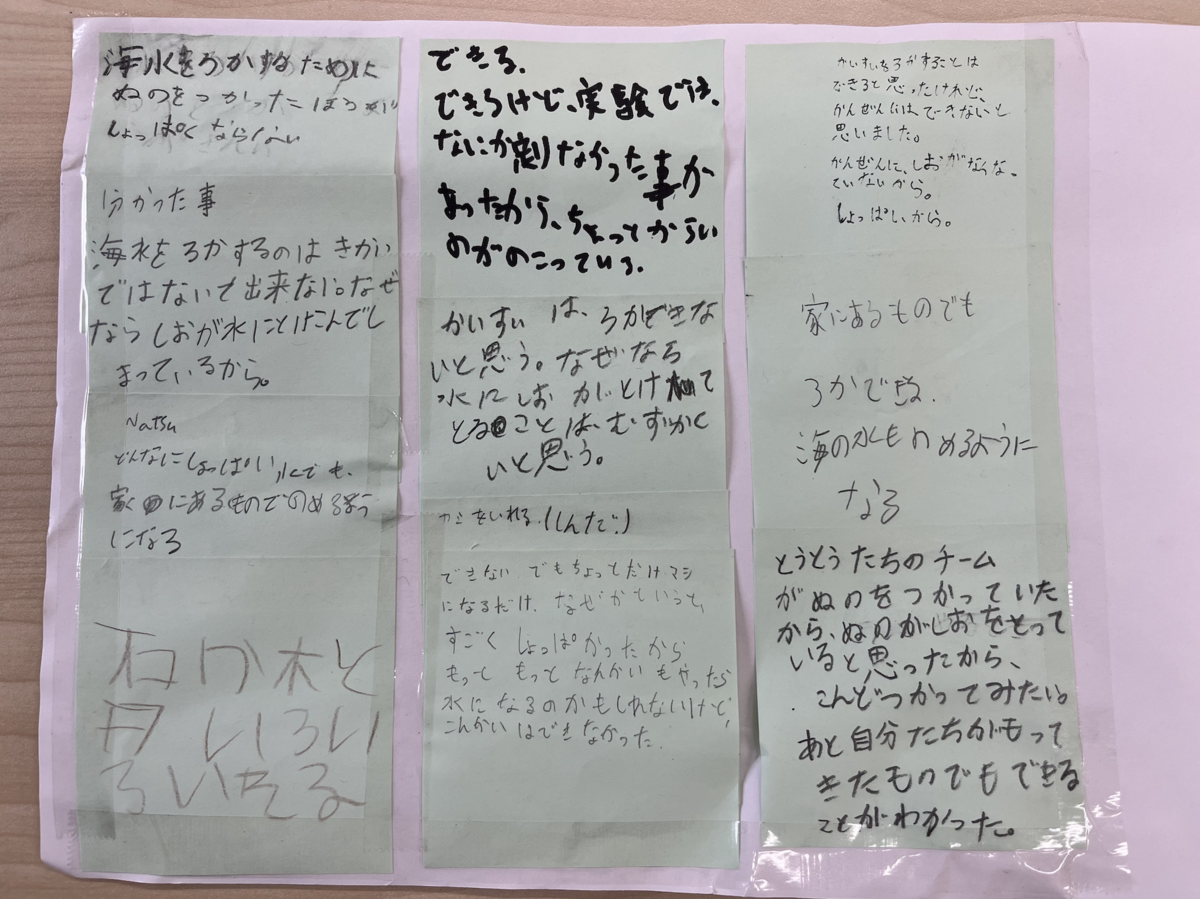 海水をろかするために
ぬのをつかったほうがい
しょっぱくならない
分かった事
海水をろかするのはきかい
ではないと出来ない。なぜ
ならしおが水にとけこんでし
まっているから。
Natsu
どんなにしょっぱい水でも、
家にあるものでのめるよう
になる
木と
いろい
ろ
できる.
できるけど、実験では、
なにか割りなかった事か
あったから、ちょっとからい
のがのこっている.
かいすいは、ろかできな
いと思う。なぜなら
水にしおがとけて
とることは、むずかく
いと思う。
をいれる.
できない でもちょっとだけマシ
になるだけ、なぜかというと、
すごく しょっぱかったから
もっと もっと なんかいもやったら
水に なるのかもしれないけど、
こんかいはできなかった.
かいすいをろかすることは
できると思ったけれど、
かんぜんにはできないと
思いました。
かんぜんに、しおがなくな、
ていないから。
しょっぱいから。
家にあるものでも
ろかできる.
海の水ものめるように
なる
とうとうたちのチーム
がぬのをつかっていた
から、ぬのがしおをとって
いると思ったから、
こんどつかってみたい。
あと自分たちがもって
きたものでもできる
ことがわかった。